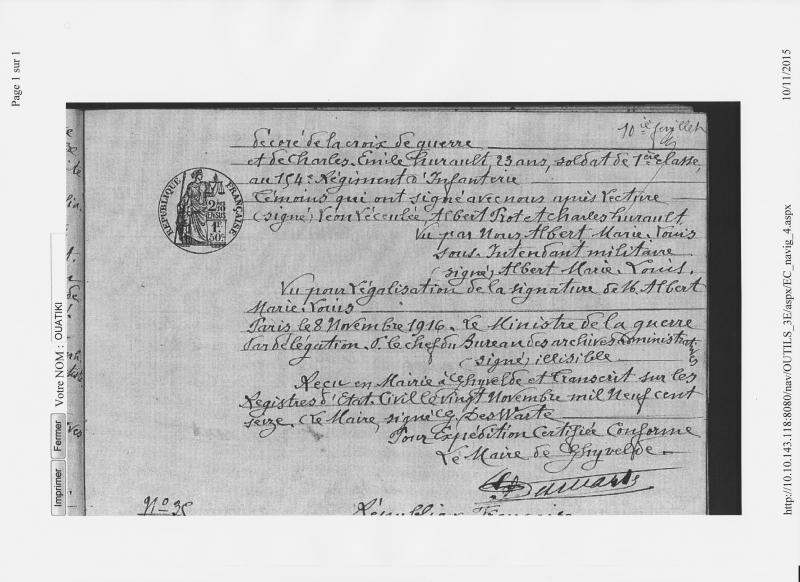 Page 1 sur 1
10/11/2015
10ie feuillet
décoré de la croix de guerre
et de Charles Emile hurault, 23 ans, soldat de 1ère classe,
au 154e Régiment d'Infanterie
Témoins qui ont signé avec nous après lecture
(signé) Léon Lécculée, Albert Piot et Charles hurault
Vu par Nous Albert Marie Louis
sous-Intendant militaire
(signé) Albert Marie Louis.
Vu pour Légalisation de la signature de M. Albert
Marie Louis
Paris le 8 Novembre 1916. Le Ministre de la guerre
Par délégation. P. le chef du Bureau des archives administratives
(signé) illisible
Reçu en Mairie à Ghyvelde et Transcrit sur les
Registres d'Etat Civil le vingt Novembre mil Neuf cent
seize. (Le Maire signé C. Des Warte
Pour Expédition Certifiée Conforme
Le Maire de Ghyvelde
RÉPUBLIQUE FRANÇAISE
2/10 EN SUS
1F 50c
No 35
République Française
Votre NOM : OUATIKI
Imprimer
Fermer
http://10.10.143.118:8080/nav/OUTILS_3E/aspx/EC_navig_4.aspx